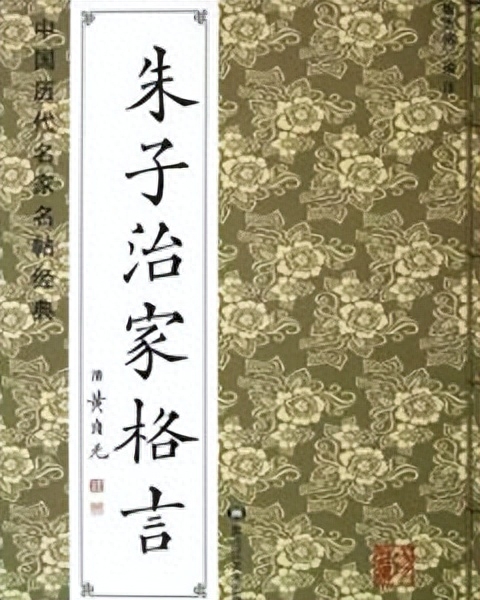 中国历代名家名帖经典
朱子治家格言
清
黄自元